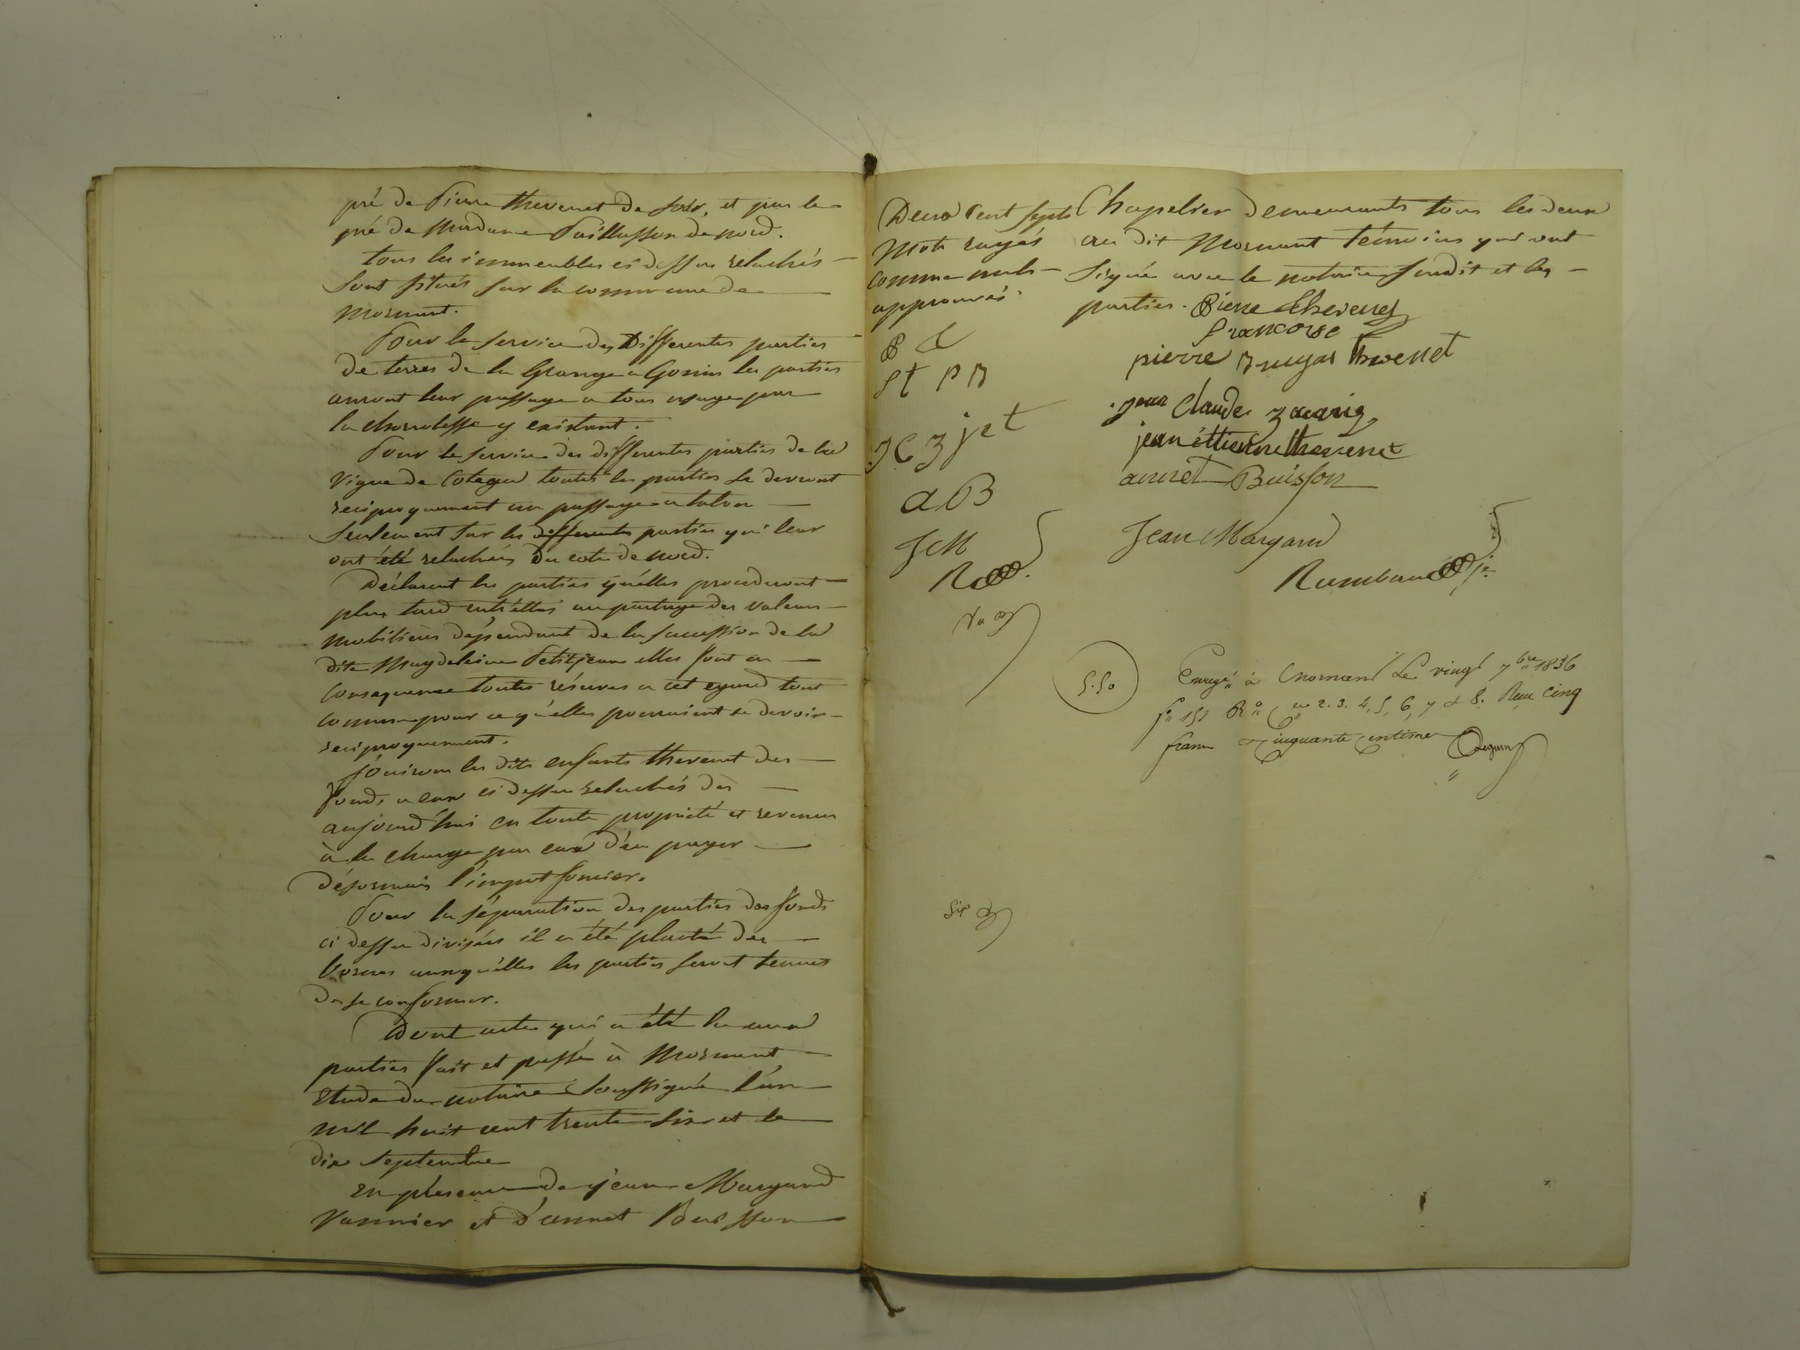 pré de Pierre thevenet de soir, et par le
pré de Madame Paillasson de nord.
tous les immeubles ci dessus relachés
sont situés sur la commune de
Mornant.
Pour le service des Differentes parties
de terres de la Grange à Gonin les parties
auront leur passage a tous usages par
la charolesse y existant.
Pour le service des differentes parties de la
vigne de Cotagar toutes les parties se devront
reciproquement un passage a talon
seulement sur les differentes parties qui leur
ont été relachées du coté de nord.
Déclarent les parties qu'elles procederont
plus tard entr'elles au partage des valeurs
mobilières dépendant de la succession de la
dite Magdeleine Petitjean elles font en
consequence toutes réserves a cet egard tout
comme pour ce qu'elles pourraient se devoir
reciproquement.
Jouiront les dits enfants thevenet des
fonds a eux ci dessus relachés dès
aujourd'hui en toute propriété et revenus
à la charge par eux d'en payer
désormais l'impot foncier.
Pour la séparation des parties des fonds
ci dessus divisées il a été planté des
bornes auxquelles les parties seront tenues
de se conformer.
Dont acte qui a été lu aux
parties fait et passé à Mornant
Etude du notaire soussigné l'an
mil huit cent trente six et le
dix septembre
En présence de jean Margand
Vannier et d'annet Buisson
Chapelier demeurants tous les deux
au dit Mornant témoins qui ont
signé avec le notaire susdit et les
parties. Pierre Thevenet
francoise
pierre thevenet
jean Claude
jean éttienne thevenet
annet Buisson
Jean Margand
Rambaud
Deux cent sept
mots rayés
comme nuls
approuvés
P T
f t P B
J C Z j e t
a B
J M
R
5.50
Enregé à Mornant Le vingt 7bre 1836
fo 151 Ro Ces 2. 3. 4, 5, 6, 7 & 8. Reçu cinq
francs cinquante centimes